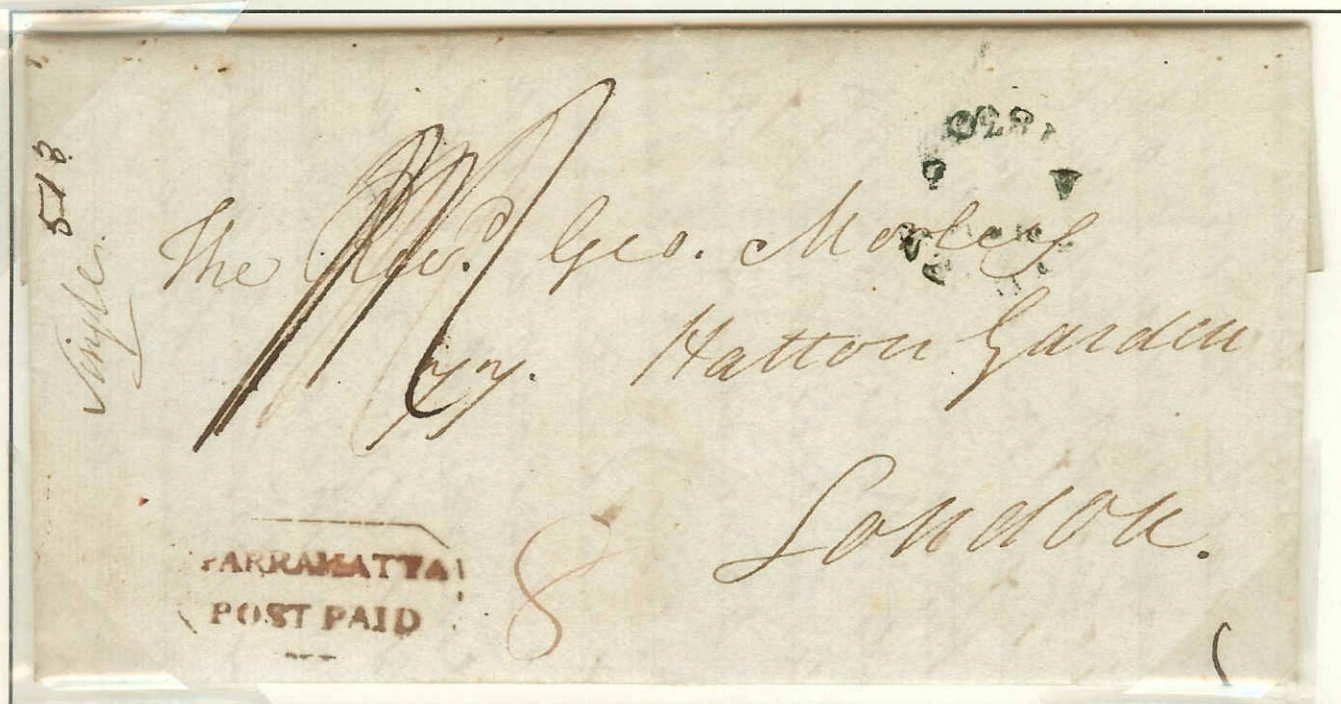 518
Single.
The Revd. Geo. Morley
77. Hatton Garden
London.
PARRAMATTA
POST PAID
8
1830